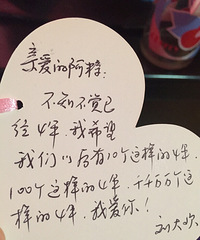 亲爱的阿粽：
不知不觉已
经4年，我希望
我们以后有10个这样的4年，
100个这样的4年，千千万个这
样的4年，我爱你！
刘大欢